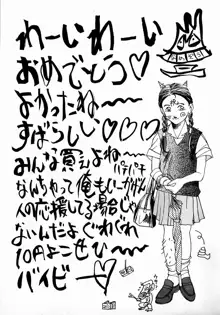 わーいわーい
おめでとう♡
よかったね〜〜
すばらしい♡♡♡
みんな買えよね〜〜
パチパチ
なんちゃって俺もしーかが
人の応援してる場合じゃ
ないんだよぐわぐわ
10円よこせひ〜
バイビ〜♡